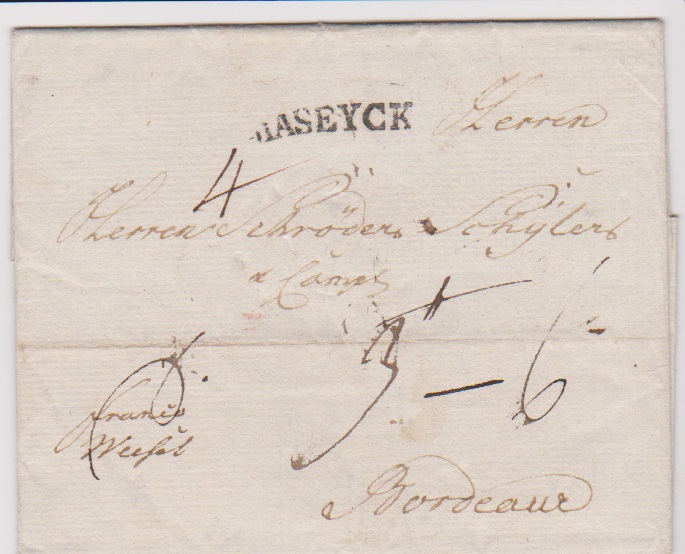 MASEYCK
Herren
4
Herren Schröders Schÿlers
& Comp
3 - 6
franco
Wesel
Bordeaux